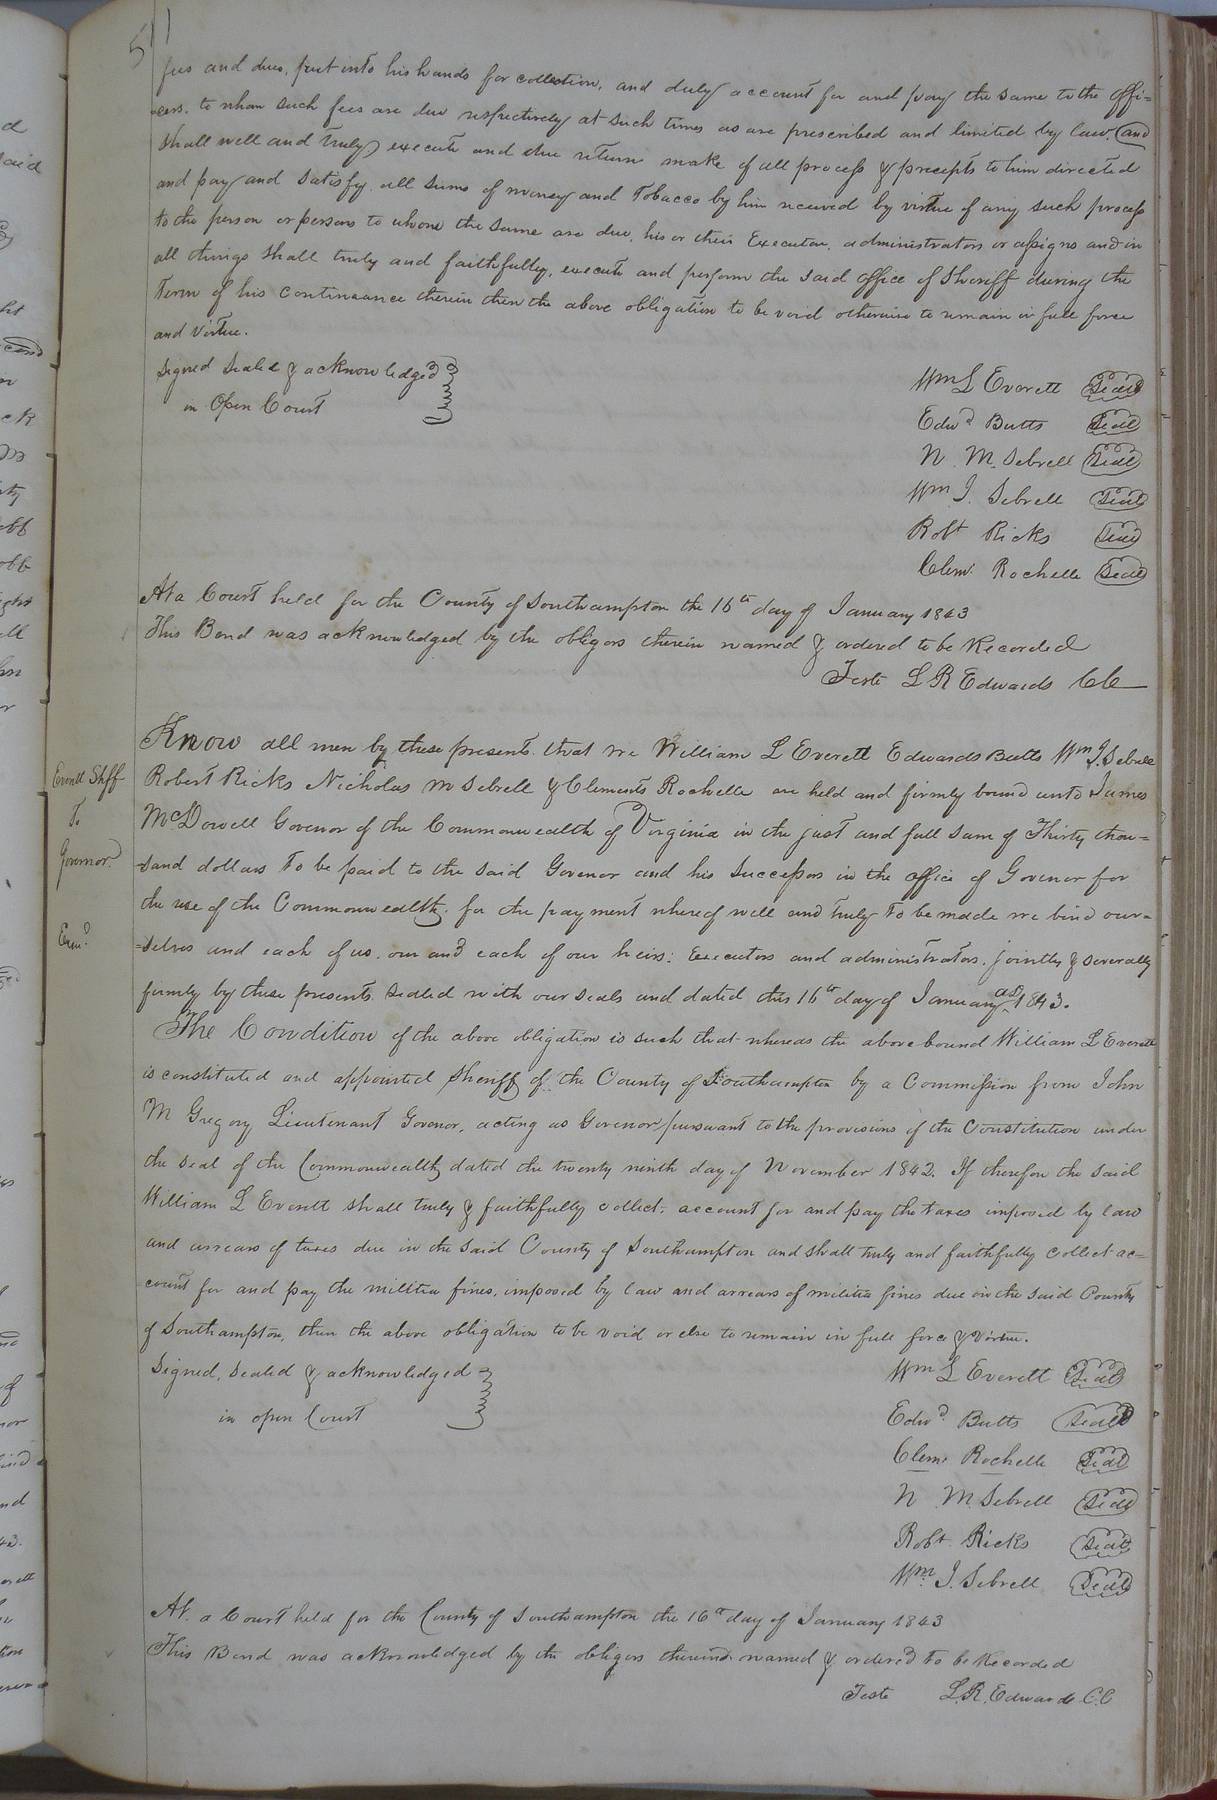 511
fees and dues, put into his hands for collection, and duly account for and pay the same to the offi=
=cers. to whom such fees are due respectively at such times as are prescribed and limited by law, and
shall well and truly execute and due return make of all process & precepts to him directed
and pay and satisfy all sums of money and Tobacco by him received by virtue of any such process
to the person or persons to whom the same are due, his or their Executors, administrators or assigns and in
all things shall truly and faithfully, execute and perform the said office of Sheriff during the
Term of his continuance therein then the above obligation to be void otherwise to remain in full force
and Virtue.
Signed Sealed & acknowledged
in Open Court
Wm L Everett Seal
Edwd Butts Seal
N. M. Sebrell Seal
Wm J. Sebrell Seal
Robt Ricks Seal
Clem. Rochelle Seal
At a Court held for the County of Southampton the 16th day of January 1843
This Bond was acknowledged by the obligors therein named & ordered to be Recorded
Teste L R Edwards CC
Know all men by these presents that we William L Everett Edwards Butts Wm J. Sebrell
Everett Shff
To
Governor
Exmd
Robert Ricks Nicholas M Sebrell & Clements Rochelle are held and firmly bound unto James
McDowell Govenor of the Commonwealth of Virginia in the just and full sum of Thirty thou=
=sand dollars to be paid to the said Govenor and his Successors in the office of Govenor for
the use of the Commonwealth, for the payment whereof well and truly to be made we bind our=
=selves and each of us. our and each of our heirs: executors and administrators. jointly & severally
firmly by these presents. Sealed with our seals and dated this 16th day of January AD 1843.
The Condition of the above obligation is such that whereas the above bound William L Everett
is constituted and appointed Sheriff of the County of Southampton by a Commission from John
M Gregory Lieutenant Govenor, acting as Govenor pursuant to the provisions of the Constitution under
the seal of the Commonwealth dated the twenty ninth day of November 1842. If therefore the said
William L Everett shall truly & faithfully collect. account for and pay the taxes imposed by law
and arrears of taxes due in the said County of Southampton and shall truly and faithfully collect ac=
=count for and pay the militia fines, imposed by law and arrears of militia fines due in the said County
of Southampton, then the above obligation to be void or else to remain in full force & Virtue.
Signed, Sealed & acknowledged
in open Court
Wm L Everett Seal
Edwd. Butts Seal
Clem. Rochelle Seal
N M. Sebrell Seal
Robt. Ricks Seal
Wm. J. Sebrell Seal
At. a Court held for the County of Southampton the 16th day of January 1843
This Bond was acknowledged by the obligors therein named & ordered to be Recorded
Teste L. R. Edwards C.C